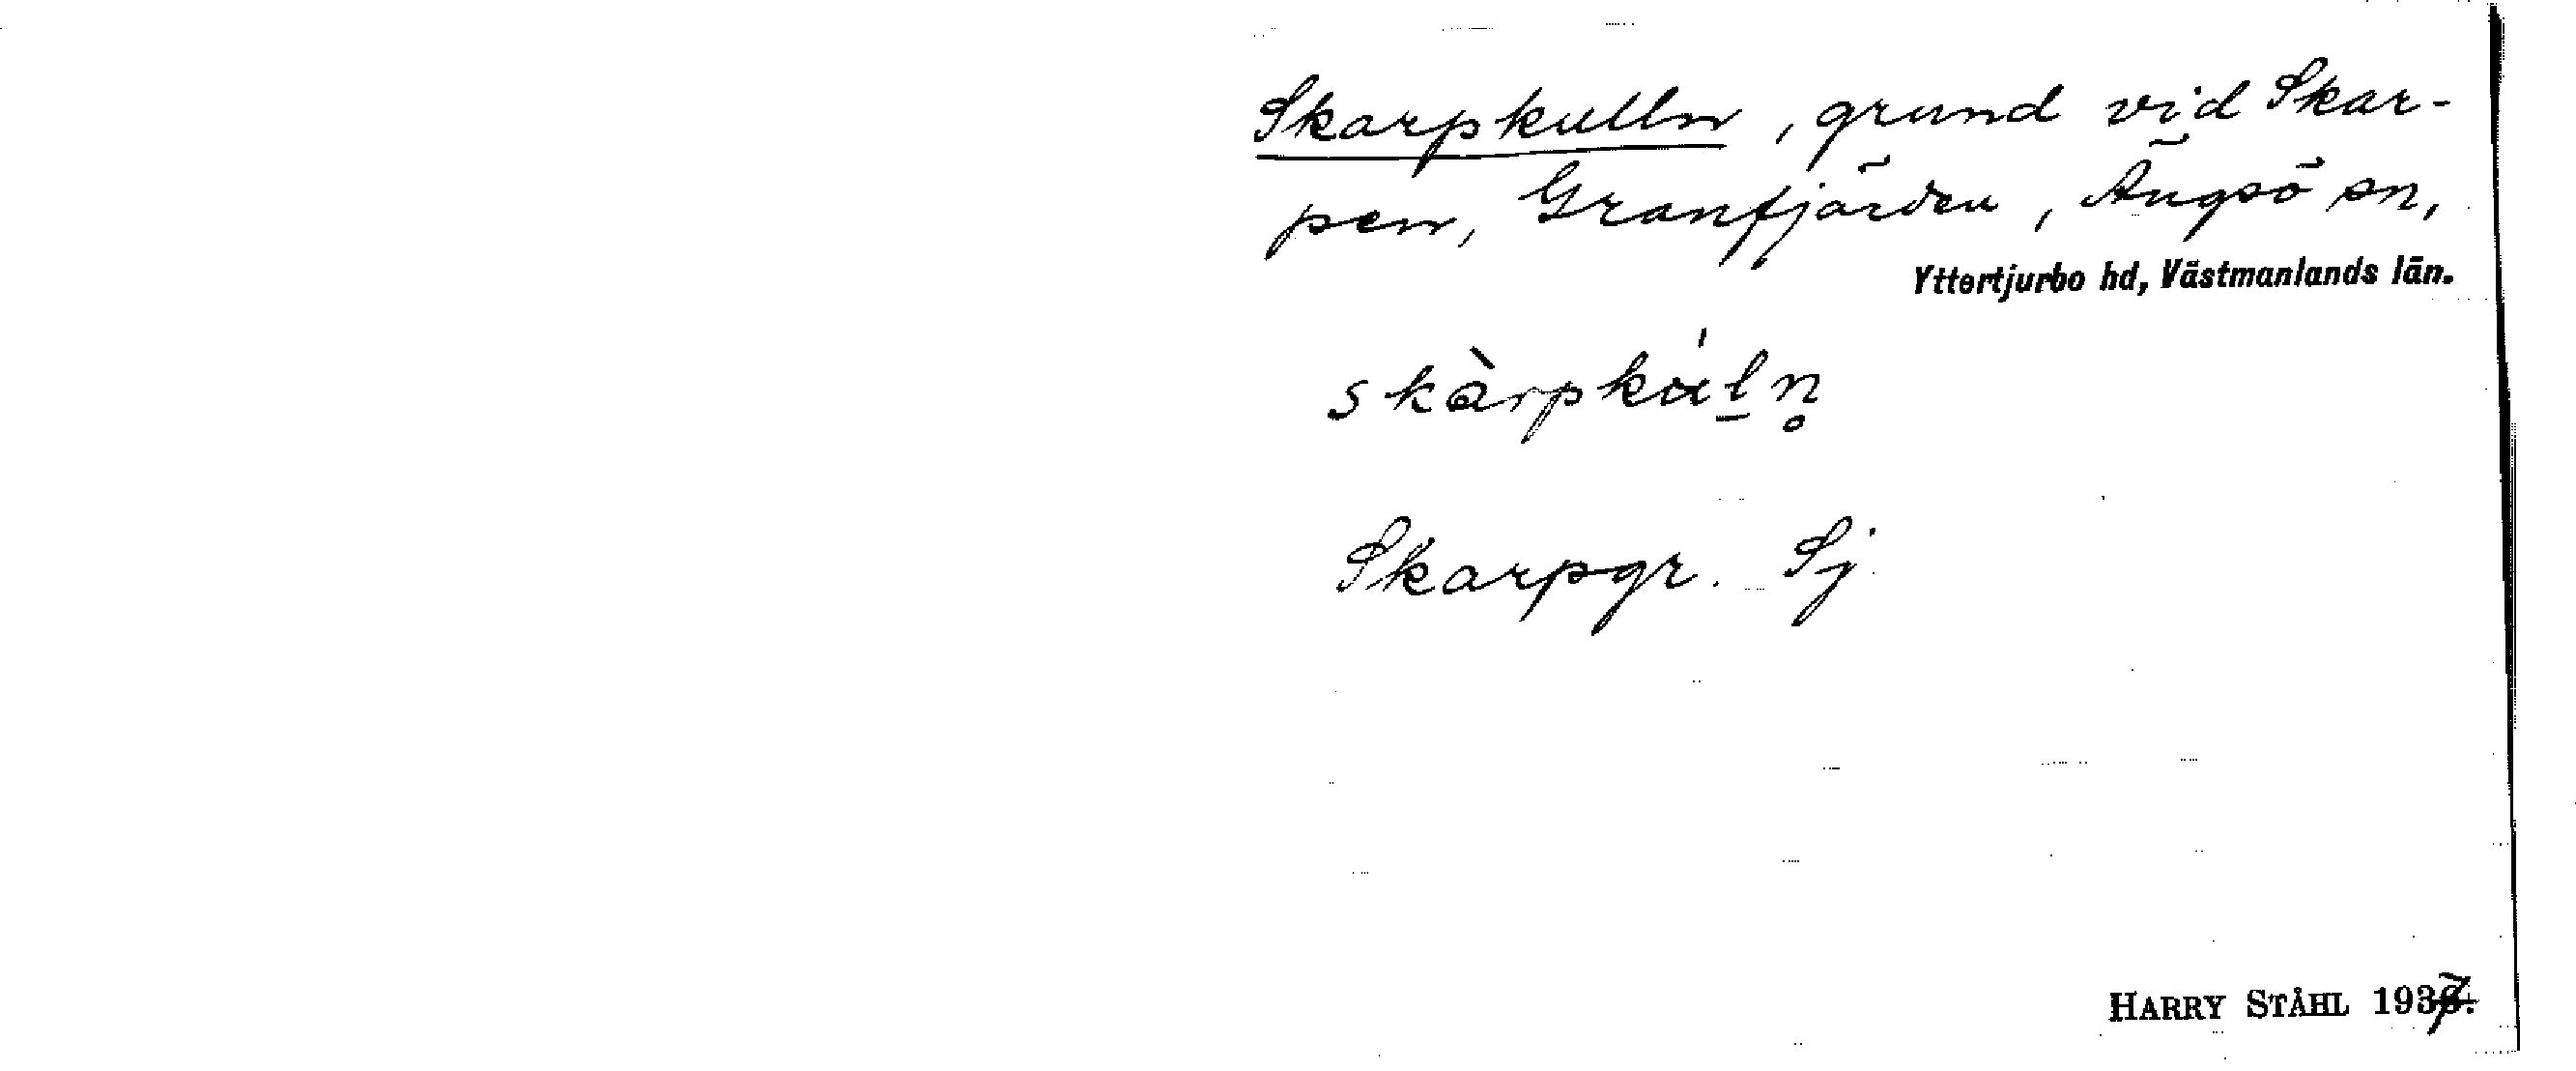 Skarpkullen, grund vid Skar-
pen, Granfjärden, Ängsö sn,
Yttertjurbo hd, Västmanlands län.
skàrpkúḻn̥
Skarpgr. Sj
HARRY STÅHL 1937.